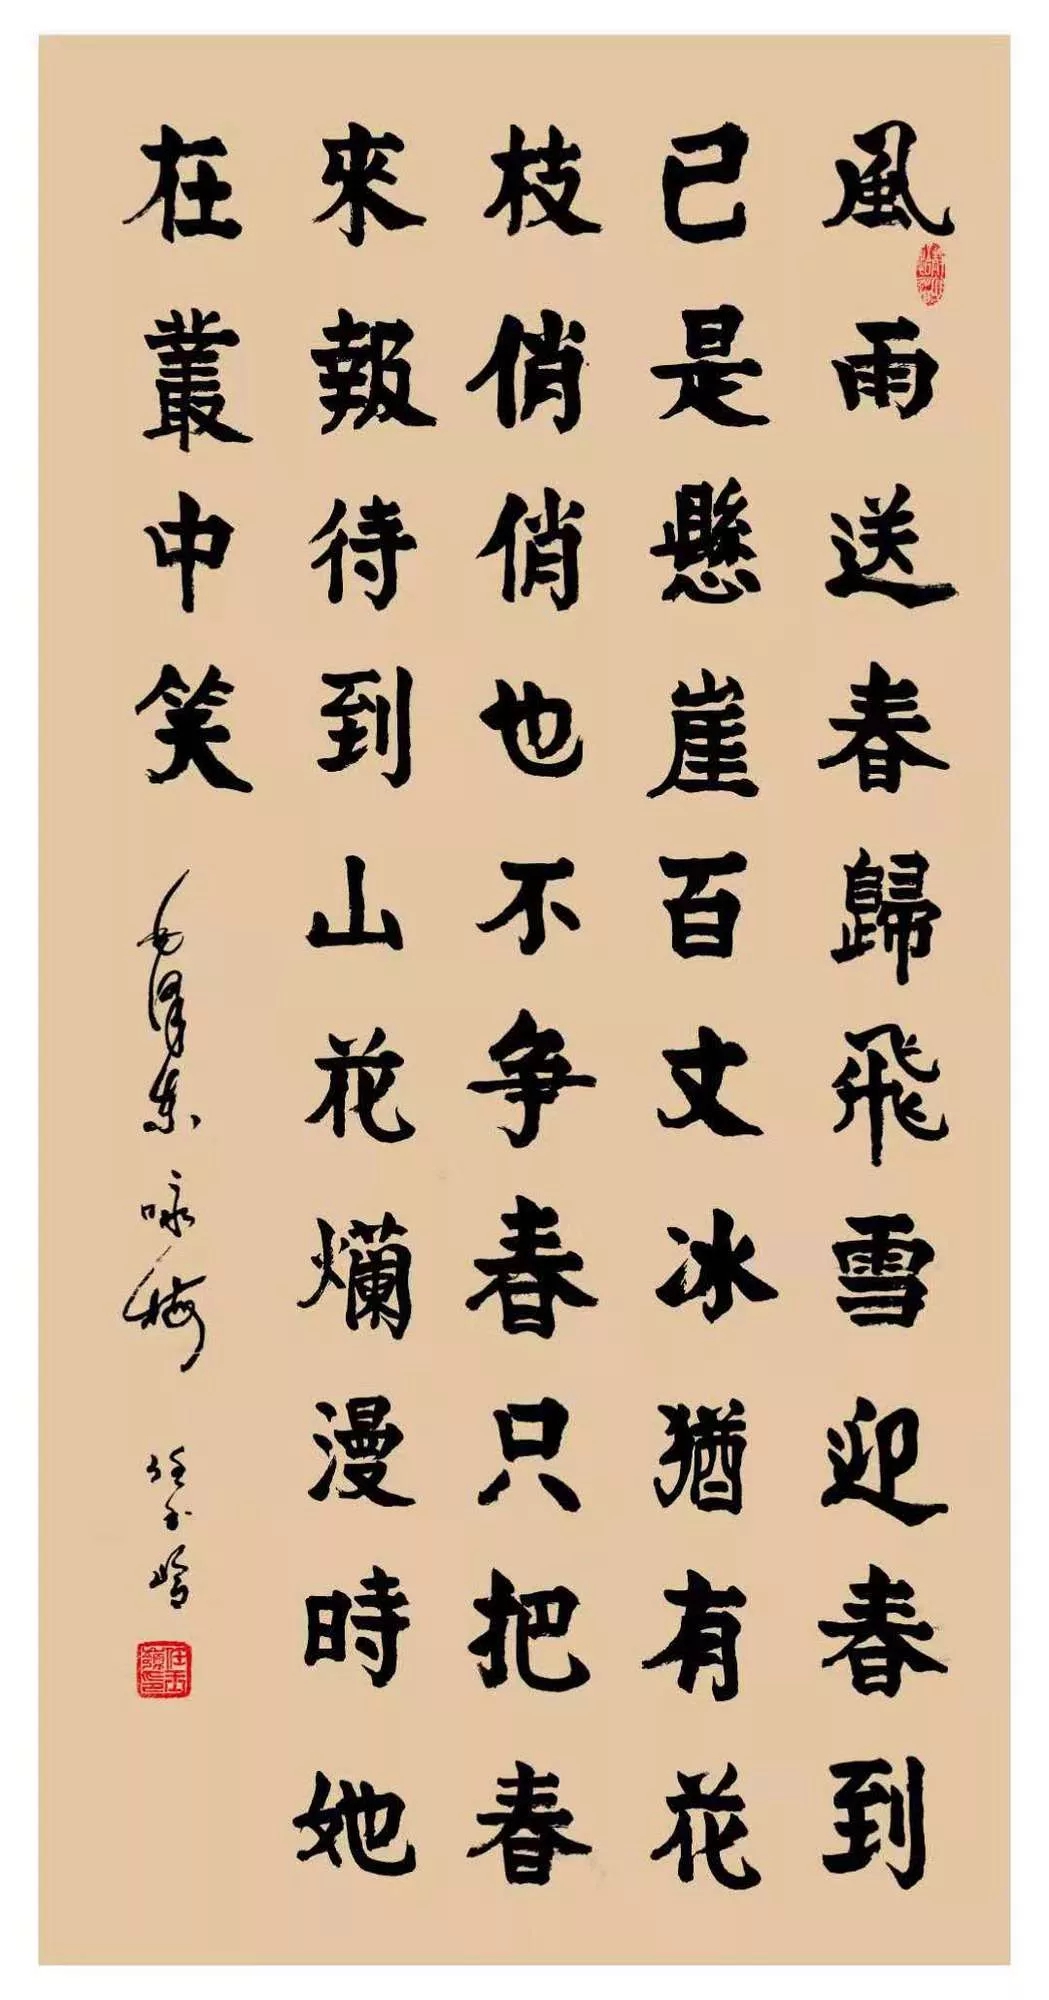 風雨送春歸飛雪迎春到
已是懸崖百丈冰猶有花
枝俏俏也不争春只把春
來報待到山花爛漫時她
在叢中笑
毛澤東 咏梅 任玉嶺
任玉嶺印